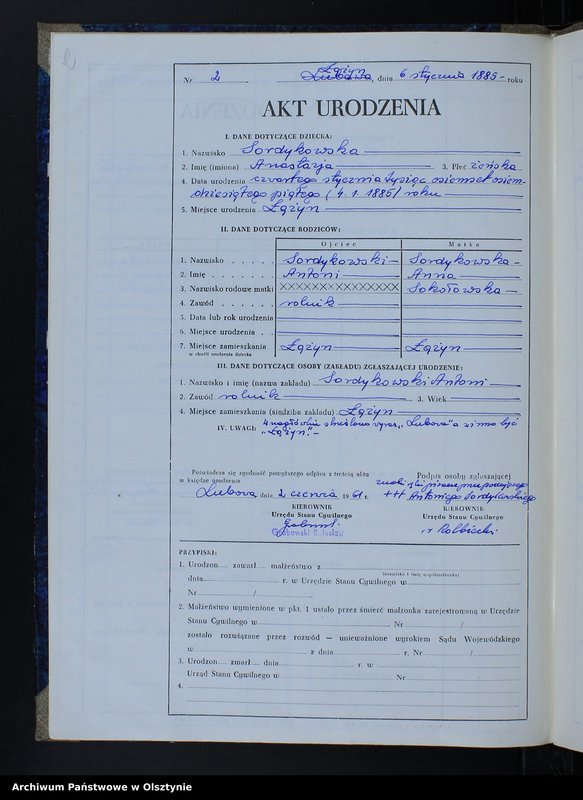 Nr 2 Lubawa Łążyn, dnia 6 stycznia 1885 roku
AKT URODZENIA
I. DANE DOTYCZĄCE DZIECKA:
1. Nazwisko Sordykowska
2. Imię (imiona) Anastazja 3. Płeć żeńska
4. Data urodzenia czwartego stycznia tysiąc osiemset osiem-
dziesiątego piątego (4.1.1885) roku
5. Miejsce urodzenia Łążyn
II. DANE DOTYCZĄCE RODZICÓW:
Ojciec Matka
1. Nazwisko Sordykowski Sordykowska
2. Imię Antoni Anna
3. Nazwisko rodowe matki XXXXXXXXXXXXXXX Sokołowska
4. Zawód rolnik
5. Data lub rok urodzenia
6. Miejsce urodzenia
7. Miejsce zamieszkania Łążyn Łążyn
w chwili urodzenia dziecka
III. DANE DOTYCZĄCE OSOBY (ZAKŁADU) ZGŁASZAJĄCEJ URODZENIE:
1. Nazwisko i imię (nazwa zakładu) Sordykowski Antoni
2. Zawód rolnik 3. Wiek
4. Miejsce zamieszkania (siedziba zakładu) Łążyn
IV. UWAGI: W nagłówku skreślono wyraz „Lubawa" a winno być
„Łążyn".-
Poświadcza się zgodność powyższego odpisu z treścią aktu
w księdze urodzenia
Podpis osoby zgłaszającej
znaki
Lubawa dnia 2 czerwca 1961 r.
+++ Antoniego Sordykowskiego
KIEROWNIK
Urzędu Stanu Cywilnego
KIEROWNIK
Urzędu Stanu Cywilnego
PRZYPISKI:
1. Urodzon zawarł małżeństwo z
(nazwisko i imię współmałżonka)
dnia r. w Urzędzie Stanu Cywilnego w
Nr /
2. Małżeństwo wymienione w pkt. 1 ustało przez śmierć małżonka zarejestrowaną w Urzędzie
Stanu Cywilnego w Nr /
zostało rozwiązane przez rozwód — unieważnione wyrokiem Sądu Wojewódzkiego
w z dnia r. Nr /
3. Urodzon zmarł dnia r. w
Urząd Stanu Cywilnego w Nr
4.
Archiwum Państwowe w Olsztynie